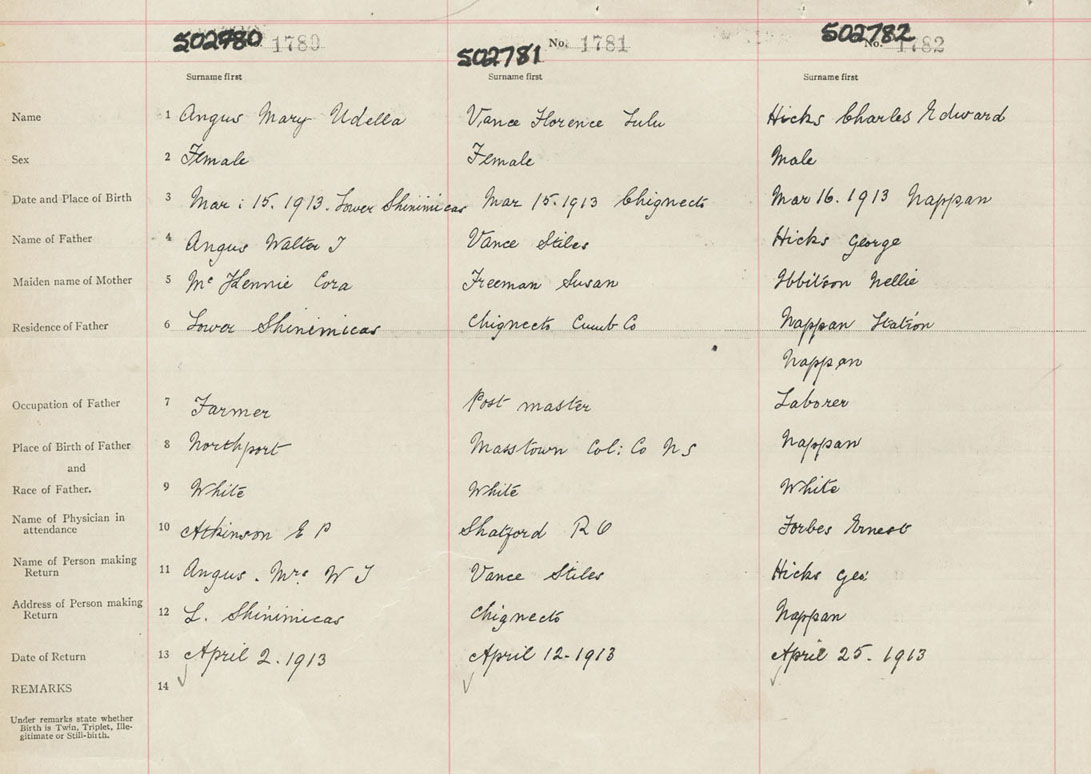 502780 1780
502781 No. 1781
502782 No. 1782
Surname first Surname first Surname first
Name 1 Angus Mary Udella Vance Florence Lulu Hicks Charles Edward
Sex 2 Female Female Male
Date and Place of Birth 3 Mar: 15. 1913. Lower Shinimicas Mar 15. 1913 Chignecto Mar 16. 1913 Nappan
Name of Father 4 Angus Walter J Vance Stiles Hicks George
Maiden name of Mother 5 Cora Freeman Susan Ibbitson Nellie
Residence of Father 6 Lower Shinimicas Chignecto Cumb Co Nappan Station
Nappan
Occupation of Father 7 Farmer Post master Laborer
Place of Birth of Father 8 Northport Masstown Col: Co NS Nappan
and
Race of Father. 9 White White White
Name of Physician in
attendance 10 Atkinson E P Shatford R O Forbes Ernest
Name of Person making
Return 11 Angus. Mrs W J Vance Stiles Hicks Geo:
Address of Person making
Return 12 L. Shinimicas Chignecto Nappan
Date of Return 13 April 2. 1913 April 12-1913 April 25. 1913
REMARKS 14
Under remarks state whether
Birth is Twin, Triplet, Ille-
gitimate or Still-birth.